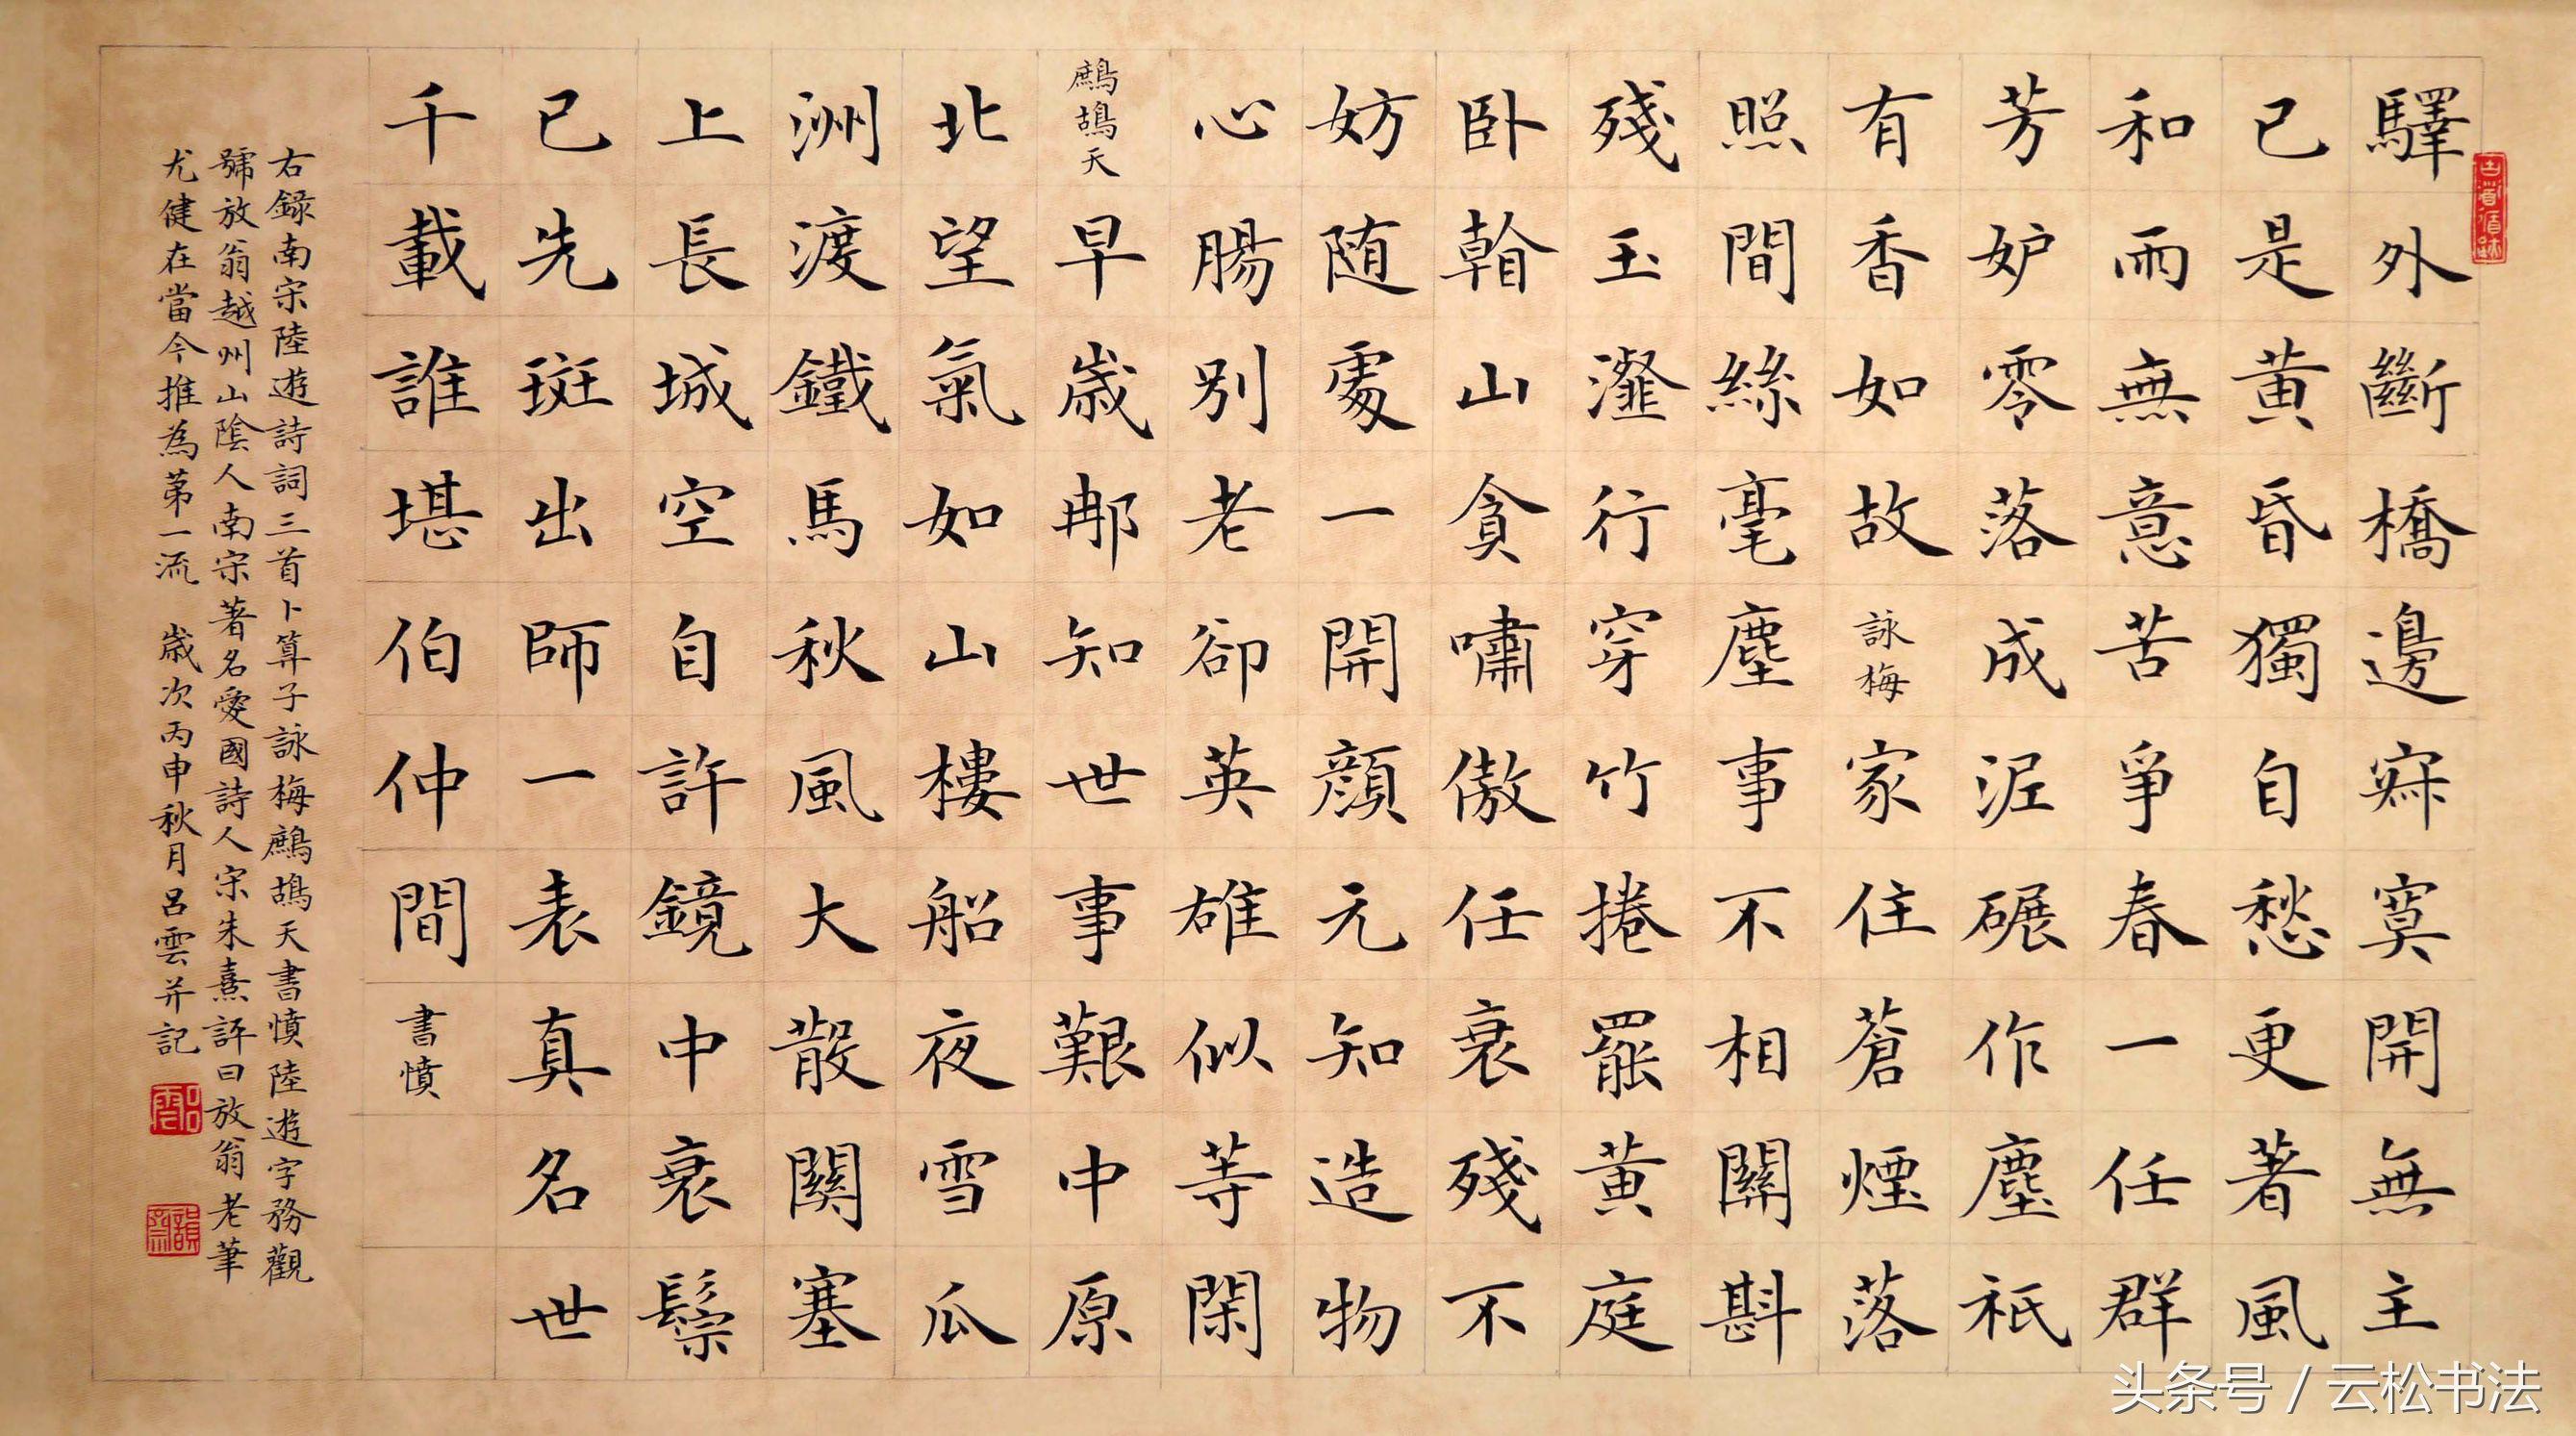 驛外斷橋邊寂寞開無主
已是黃昏獨自愁更著風
和雨無意苦爭春一任群
芳妒零落成泥碾作塵祇
有香如故詠梅家住蒼煙落
照間絲毫塵事不相關斟
殘玉瀣行穿竹捲罷黃庭
卧看山貪嘯傲任衰殘不
妨随處一開顏元知造物
心腸別老卻英雄似等閑
鷓鴣天早歲那知世事艱中原
北望氣如山樓船夜雪瓜
洲渡鐵馬秋風大散關塞
上長城空自許鏡中衰鬢
已先斑出師一表真名世
千載誰堪伯仲間書憤
右錄南宋陸遊詩詞三首卜算子詠梅鷓鴣天書憤陸遊字務觀
號放翁越州山陰人南宋著名愛國詩人宋朱熹評曰放翁老筆
尤健在當今推為第一流 歲次丙申秋月呂雲并記
头条号 / 云松书法